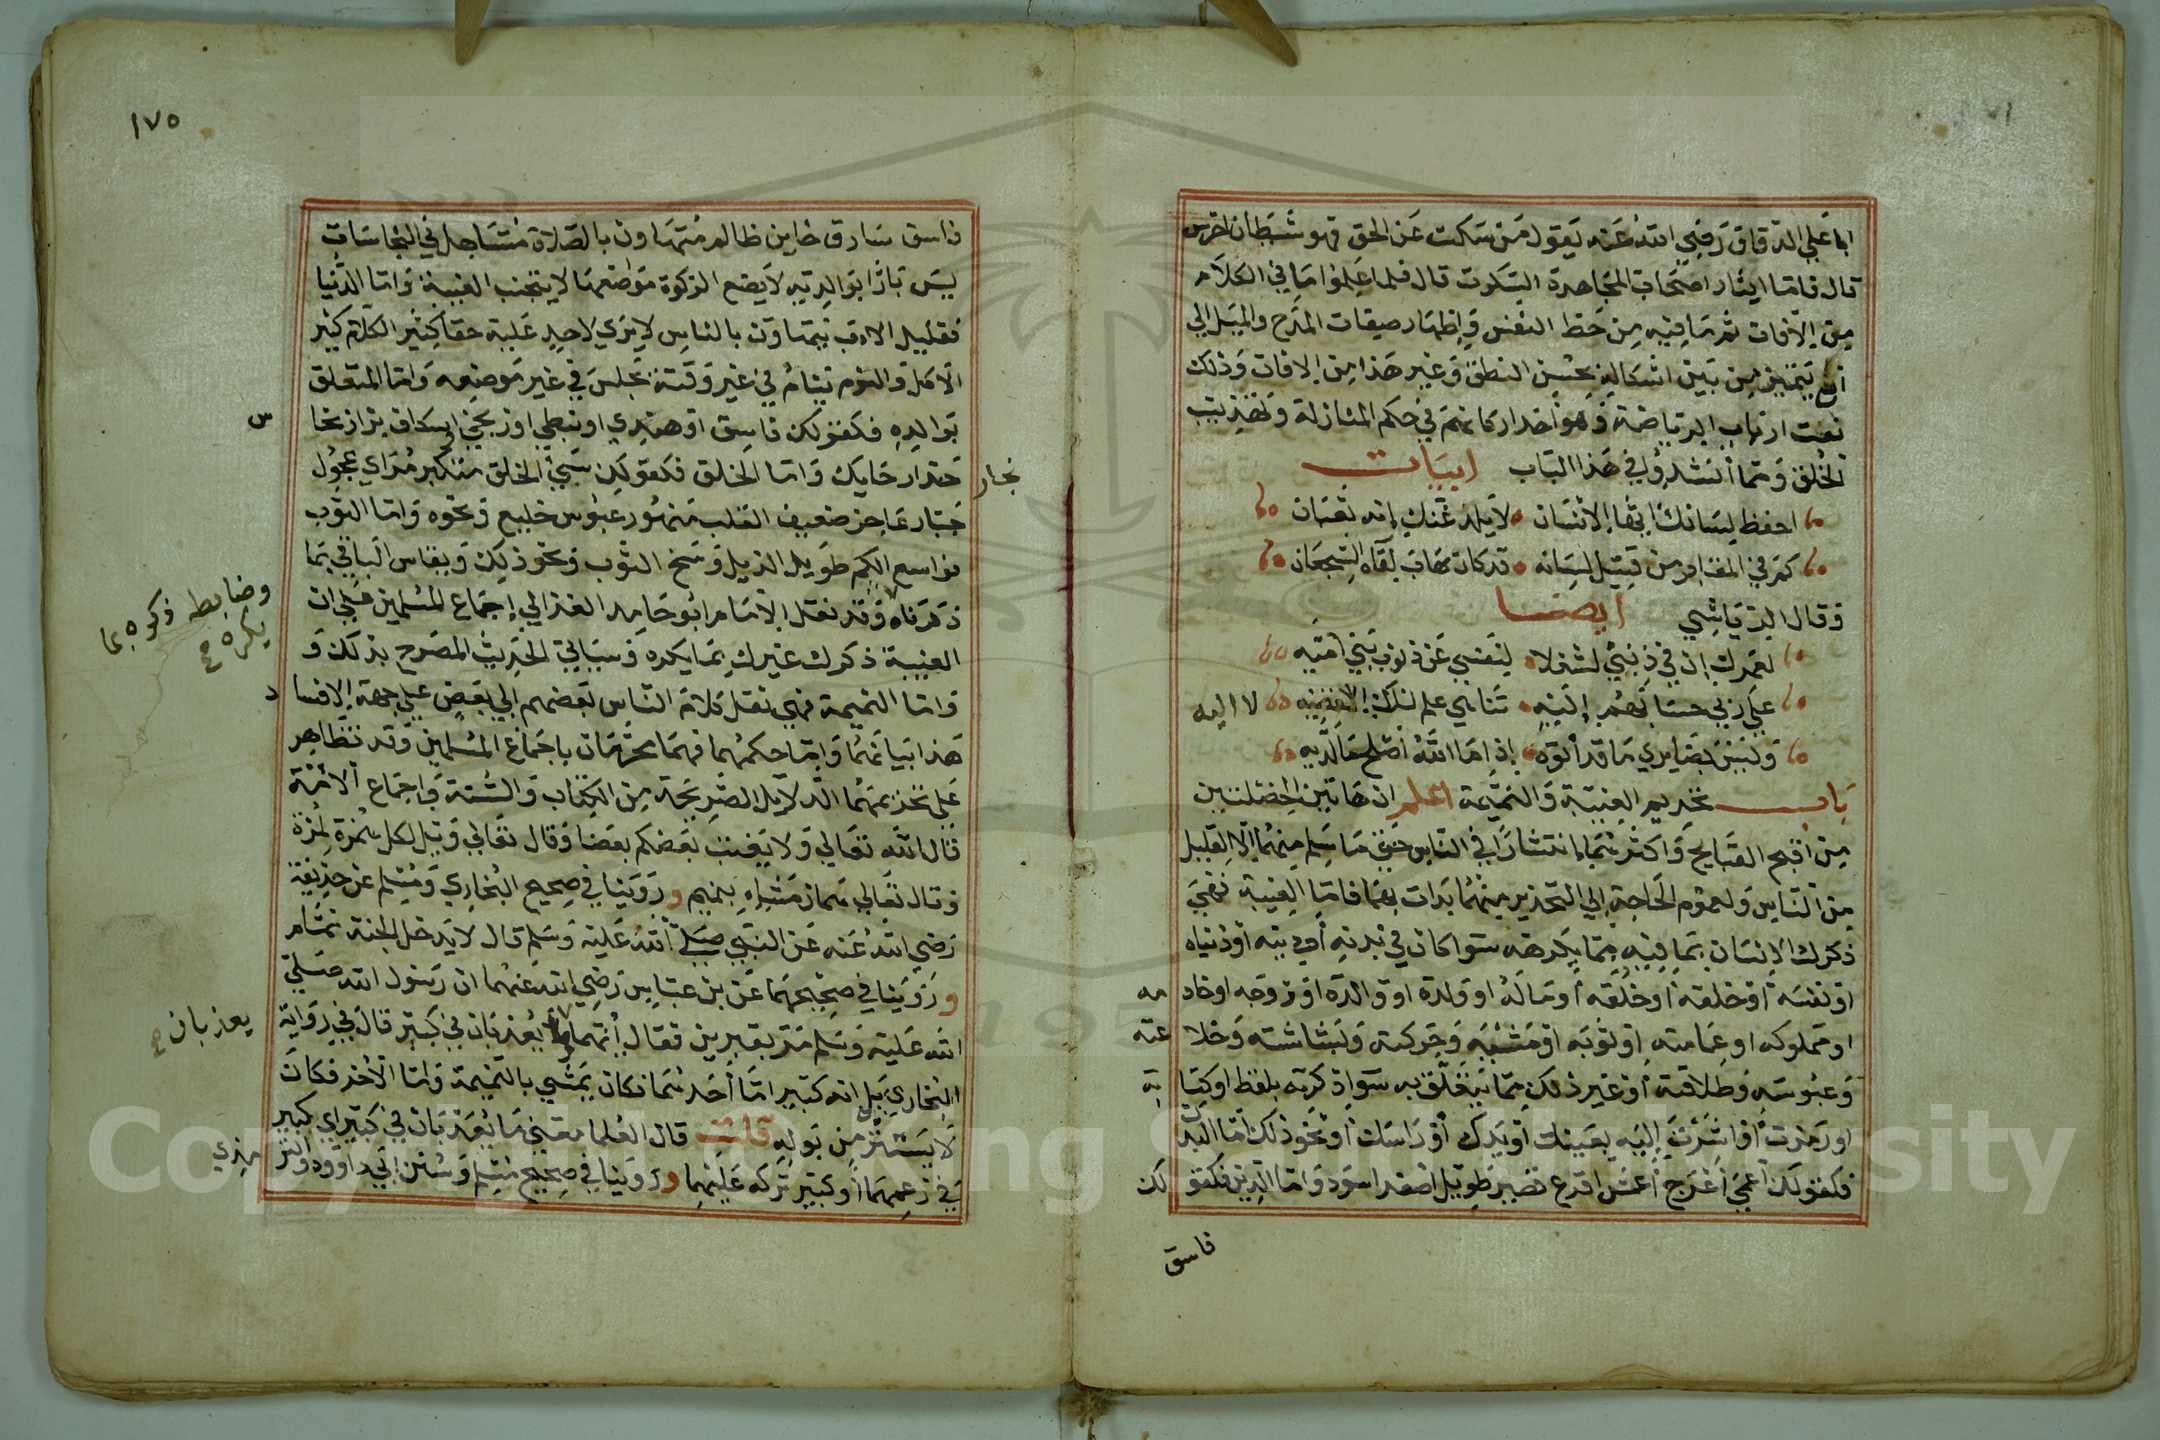 ابا علي الدقاق رضي الله عنه يقول من سكت عن الحق فهو شيطان اخرس
قال فاما ايثار اصحاب المجاهدة السكوت قال فلما علموا ما في الكلام
من الآفات ثم ما فيه من حظ النفس واظهار صيفات المدح والميل الي
ان يتميز من بين اشكاله بحسن النطق وغير هذا من الافات وذلك
نعت ارباب الرياضة وهو احد اركانهم في حكم المنازلة وتهذيب
الخلق ومما انشدوا في هذا الباب ابيات
احفظ لسانك ايها الانسان لا يلدغنك انه ثعبان
كم في المقابر من قتيل لسانه قد كان هاب لقاه الشجعان
وقال الرياشي ايضا
لعمرك ان في ذنبي لشغلا لنفسي عن ذنوب بني اميه
علي ربي حسابهم اليه تناهي علم ذلك لا اليه
وليس بضايري ما قد اتوه اذا ما الله اصلح ما لديه
باب تحريم الغيبة والنميمة اعلم ان هاتين الخصلتين
من اقبح القبايح واكثرها انتشارا في الناس حتي ما يسلم منهما الا القليل
من الناس ولعموم الحاجة الي التحذير منهما بدات بهما فاما الغيبة فهي
ذكرك الانسان بما فيه مما يكرهه سوا كان في بدنه او دينه او دنياه
او نفسه او خلقه او خلقه او ماله او ولده او والده او زوجه او خاد مه
او مملوكه او عمامته او ثوبه او مشيه وحركته وبشاشته وخلا عته
وعبوسه وطلاقته او غير ذلك مما يتعلق به سوا ذكرته بلفظ او كتا به
او رمزت او اشرت اليه بعينك او يدك او راسك او نحو ذلك اما البدن
فكقولك اعمي اعرج اعمش اقرع قصير طويل اصفر اسود واما الدين فكقو لك
فاسق
١٧٥
فاسق سارق خاين ظالم متهاون بالصلاة متساهل في النجاسات
ليس بارا بوالديه لا يضع الزكوة مواضعها لا يجتنب الغيبة واما الدنيا
فقليل الادب يتهاون بالناس لا يري لاحد عليه حقا كثير الكلام كثير
الاكل والنوم ينام في غير وقته يجلس في غير موضعه واما المتعلق
بوالده فكقولك فاسق او هندي او نبطي او زنجي اسكاف بزاز نخا س
نجار حداد حايك واما الخلق فكقولك سيئ الخلق متكبر مراي عجول
جبار عاجز ضعيف القلب متهور عبوس خليع ونحوه واما الثوب
فواسع الكم طويل الذيل وسخ الثوب ونحو ذلك ويقاس الباقي بما
ذكرناه وقد نقل الامام ابو حامد الغزالي اجماع المسلمين علي ان
وضابطه ذكره بما يكره صح
الغيبة ذكرك غيرك بما يكره وسياتي الحديث المصرح بذلك و
واما النميمة فهي نقل كلام الناس بعضهم الي بعض علي جهة الافسا د
هذا بيانهما واما حكمهما فهما محرمتان باجماع المسلمين وقد تظاهر
علي تحريمهما الدلايل الصريحة من الكتاب والسنة واجماع الامة
قال الله تعالي ولا يغتب بعضكم بعضا وقال تعالي ويل لكل همزة لمزة
وقال تعالي هماز مشاء بنميم وروينا في صحيح البخاري ومسلم عن حذيفة
رضي الله عنه عن النبي صلي الله عليه وسلم قال لا يدخل الجنة نمام
وروينا في صحيحهما عن بن عباس رضي الله عنهما ان رسول الله صلي
الله عليه وسلم مر بقبرين فقال انهما يعذبان في كبير قال في رواية
يعذبان صح
البخاري بلي انه كبير اما احدهما فكان يمشي بالنميمة واما الاخر فكان
لا يستتر من بوله قلت قال العلما معني ما يعذبان في كبير اي كبير
في زعمهما او كبير تركه عليهما وروينا في صحيح مسلم وسنن ابي داوود والتر مذي